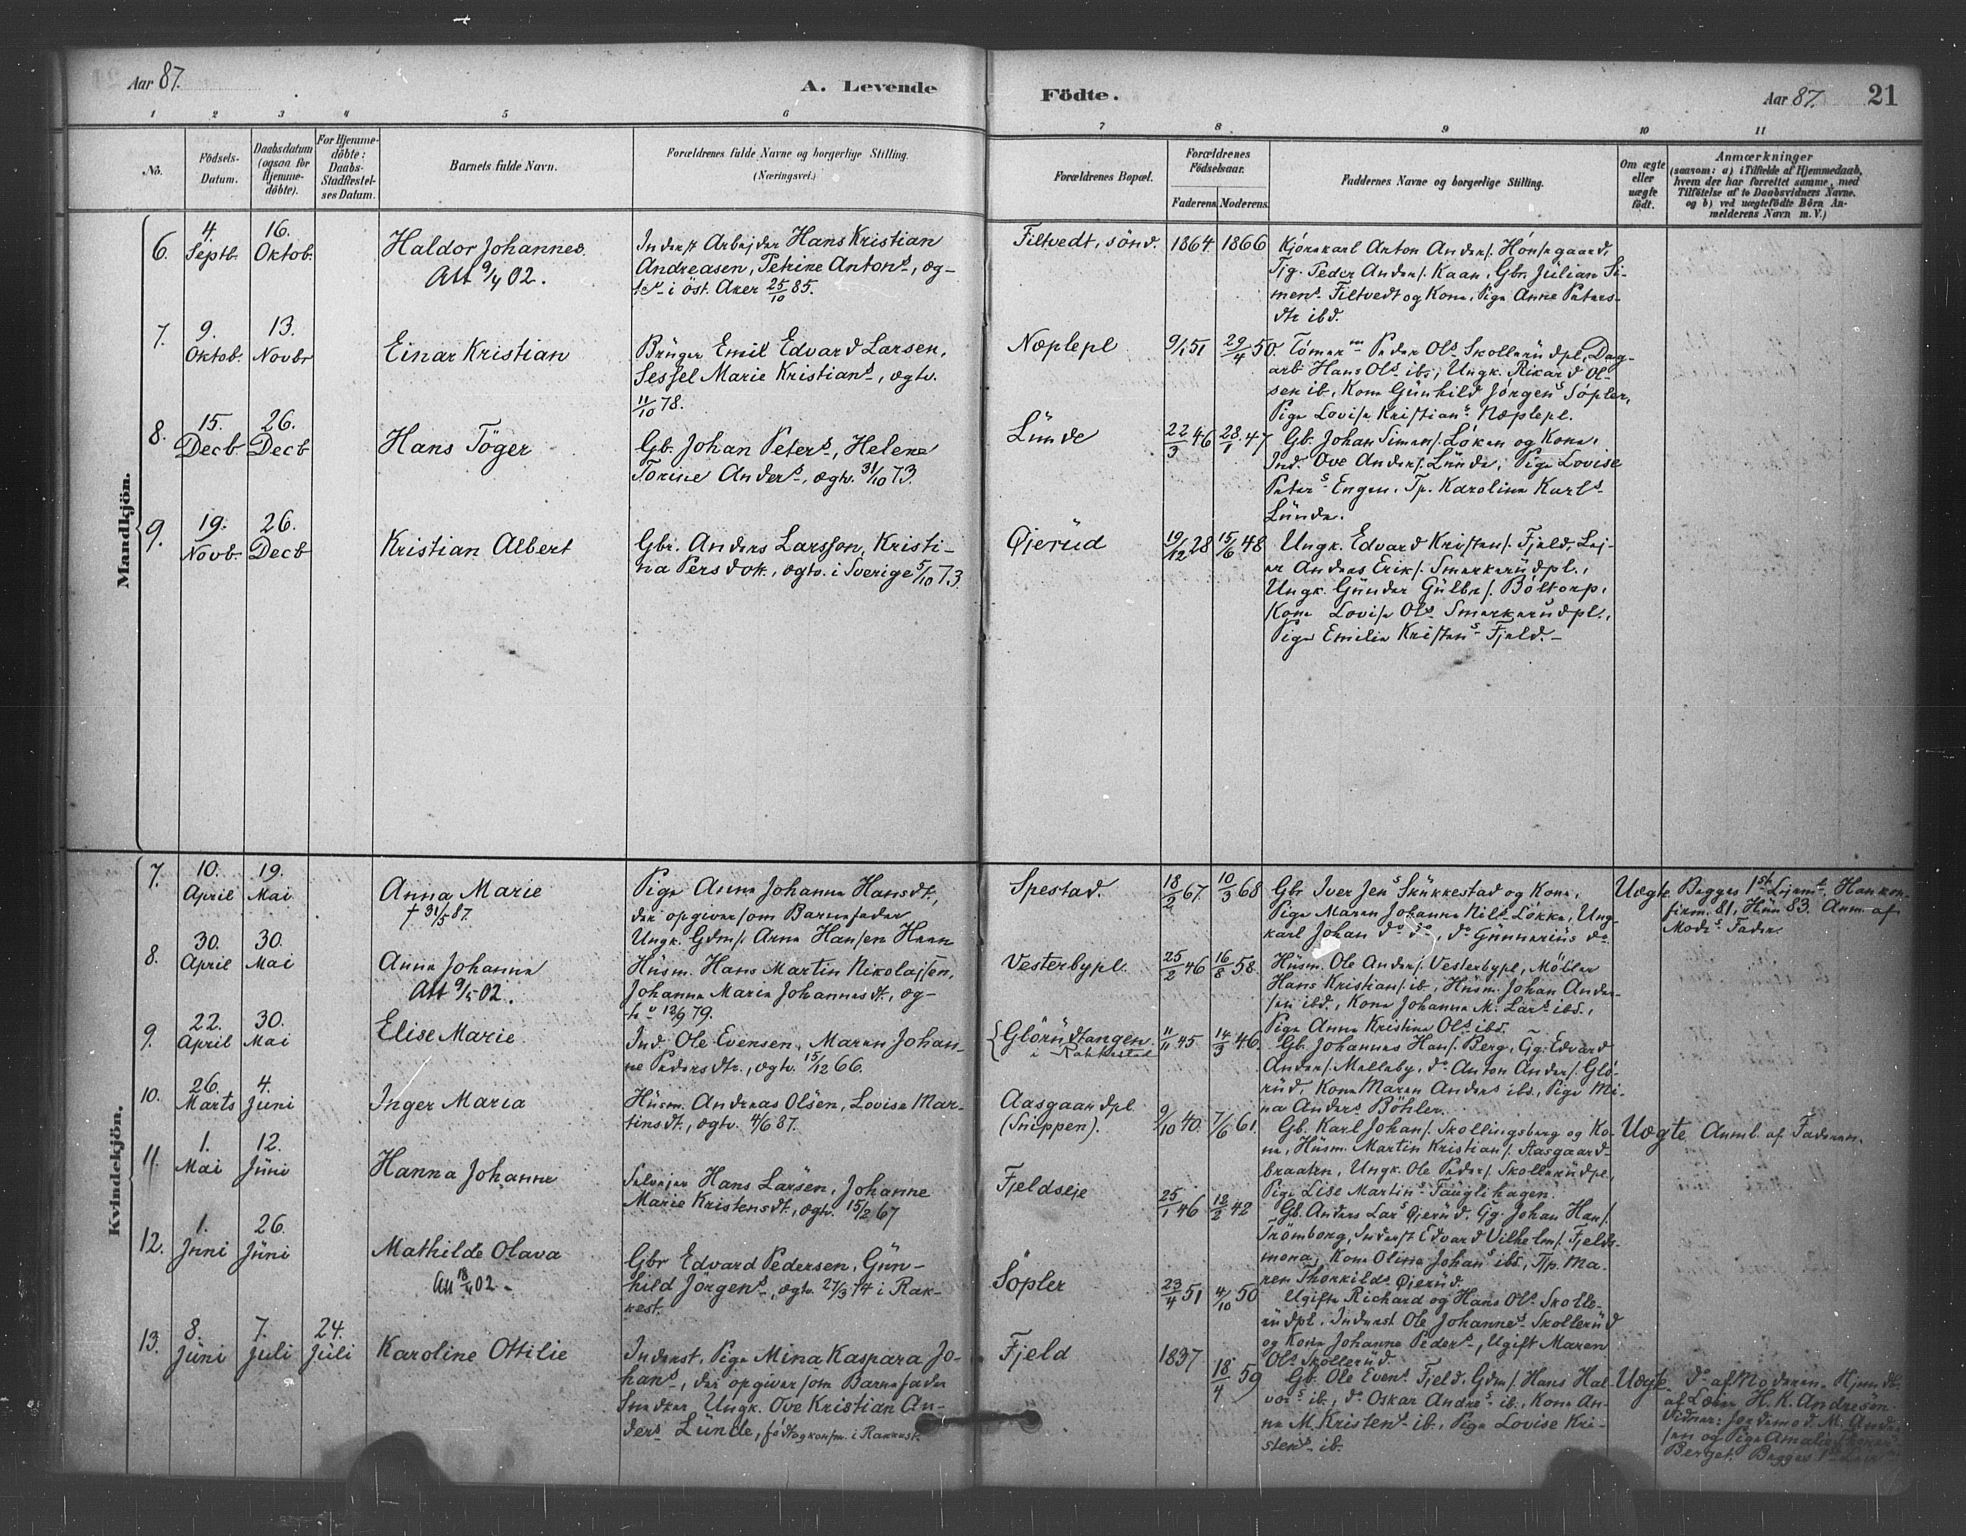 Aar 87. A. Levende Födte. Aar 87. 21
1 2 3 4 5 6 7 8 9 10 11
No. Födsels-Datum. Daabsdatum (ogsaa for Hjemme-döbte). For Hjemme-döbte: Daabs-Stadfæstelses Datum. Barnets fulde Navn. Forældrenes fulde Navne og borgerlige Stilling. (Næringsvei.) Forældrenes Bopæl. Forældrenes Födselsaar. Faderens. Moderens. Faddernes Navne og borgerlige Stilling. Om ægte eller uægte födt. Anmærkninger (saasom: a) i Tilfælde af Hjemmedaab, hvem der har forrettet samme, med Tilföielse af to Daabsvidners Navne. og b) ved uægtefödte Börn Anmelderens Navn m. V.)
Mandkjön.
6. 4 Septb. 16. Oktob. Haldor Johannes
Att 9/4 02.
Inderst Arbejder Hans Kristian
Andreasen, Petrine Antons, æg-
tev i öst. Aker 25/10 85.
Filtvedt, sönd. 1864 1866
Kjörekarl Anton Anders. Hönsegaard,
Tjg. Peder Anders. Kaan, Gbr. Julian Si-
mens Filtvedt og Kone, Pige Anne Peters-
dtr ibd.
7. 9. Oktob. 13. Novbr Einar Kristian
Brüger Emil Edvard Larsen,
Sessel Marie Kristians, ægtv.
11/10 78.
Næplepl 9/1 51 29/4 50.
Tömerm Peder Ols Skollerüdpl, Dag-
arb Hans Ols ibs, Ungk. Rikard Ol-
sen ib, Kone Günhild Jörgens Söpler,
Pige Lovise Kristians Næplepl.
8. 15. Decb 26. Decb Hans Töger
Gb. Johan Peters, Helene
Torine Anders, ægtv. 31/10 73.
Lünde 22/3 46 28/1 47
Gb. Johan Simens. Löken og Kone,
Ind. Ove Anders. Lünde, Pige Lovise
Peters Engen, Tp. Karoline Karls
Lünde.
9. 19. Novb. 26. Decb Kristian Albert
Gbr. Anders Larsson, Kristi-
na Persdok., ægtv. i Sverige 5/10 73.
Öjerüd 19/12 28 15/6 48
Ungk. Edvard Kristens. Fjeld, Lej-
er Anders Eriks. Smerkerüdpl.,
Ungk. Günder Gülbr. Böltorp,
Kone Lovise Ols Smerkerüdpl.,
Pige Emilie Kristens Fjeld.
Kvindekjön.
7. 10. April 19. Mai Anna Marie
† 31/5 87.
Pige Anne Johanne Hansdt.,
der opgiver som Barnefader
Ungk. Gdms. Arne Hansen Haan
Spestad. 18/2 67. 10/3 68
Gbr Iver Jens Skükkestad og Kone,
Pige Maren Johanne Nils Lökke, Ung-
karl Johan do do, do Günnerius do
Uægte. Begges 1ste Lejerm., Han kon-
firm. 81, Hün 83. Anm. af
Mods Fader.
8. 30. April 30. Mai Anna Johanne
Att 9/5 02.
Hüsm. Hans Martin Nikolajsen,
Johanne Marie Johannesdt, æg-
tev 12/9 79.
Vesterbypl. 25/2 46 16/8 58.
Hüsm. Ole Anders. Vesterbypl, Möller
Hans Kristians. ib, Hüsm. Johan Ander-
sen ibd., Kone Johanne M. Lars ibs.,
Pige Anne Kristine Ols ibs.
9. 22. April 30. Mai Elise Marie
Ind. Ole Evensen, Maren Johan-
ne Pedersdtr., ægtv. 15/12 66.
Glörüdtangen i Rakkestad 11/11 45 14/3 46.
Gb. Johannes Hans. Berg, Gg. Edvard
Anders. Melleby, do Anton Anders. Glö-
rüd, Kone Maren Anders ibs, Pige Mi-
na Anders Böhler.
10. 26. Marts 4. Juni Inger Maria
Hüsm. Andreas Olsen, Lovise Mar-
tinsdt., ægtv. 4/6 87.
Aasgaardpl (Snippen). 9/10 40. 7/6 61.
Gb. Karl Johans. Skollingsberg og Ko-
ne, Hüsm. Martin Kristians. Aasgaard-
braaten, Ungk. Ole Peders. Skollerüdpl,
Pige Lise Martins Tauglihagen.
Uægte Anml. af Faderen.
11. 1. Mai 12. Jüni Hanna Johanne
Selvejer Hans Larsen, Johanne
Marie Kristensdt., ægtv. 15/2 67
Fjeldseje 25/1 46 12/2 42
Gb. Anders Lars Öjerüd. Gg. Johan Hans.
Trömborg, Inderst Edvard Vilhelms. Fjelds-
mona, Kone Olina Johans ibs, Tp. Ma-
ren Thorkilds Öjerüd.
12. 1. Juni 26. Jüni Mathilde Olava
Att 18/4 02
Gbr Edvard Pedersen, Gün-
hild Jörgens, ægtv. 27/3 74 i Rak-
kest.
Söpler 23/4 51 4/10 50
Ugifte Richard og Hans Ols Skolle-
rüdpl, Inderst Ole Johannes Skollerüd
og Kone Johanne Peders, Ugift Maren
Ols Skollerüd.
13. 8. Jüni 7. Juli 24. Jüli Karoline Ottilie
Inderst, Pige Mina Kaspara Jo-
hans, der opgiver som Barnefader
Snedker, Ungk. Ove Kristian An-
ders Lünde, född og konfm. i Rakkest.
Fjeld 1837 18/4 59
Gb. Ole Evens Fjeld, Gdms. Hans Hal-
vors ib, do Oskar Andrs ib, Kone An-
ne M. Kristens ib, Pige Lovise Kri-
stens ib.
Uægte. do af Moderen. Hjemdb.
af Læier H. K. Andresen.
Vidner: Jordemod M. Ander
sen og Pige Amalie
Berget. Begges